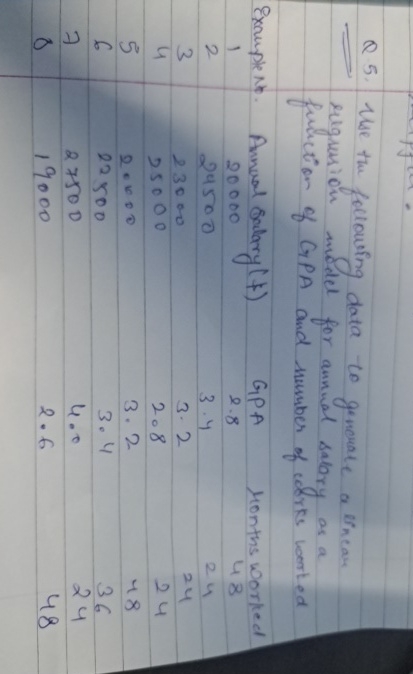 Q 5. Use the following data to generate a linear
regression model for annual salary as a
function of GPA and number of works worked
Example No. Annual Salary (₹) GPA Months worked
1 20000 2.8 48
2 24500 3.4 24
3 23000 3.2 24
4 25000 2.8 24
5 20000 3.2 48
6 22500 3.4 36
7 27500 4.0 24
8 19000 2.6 48